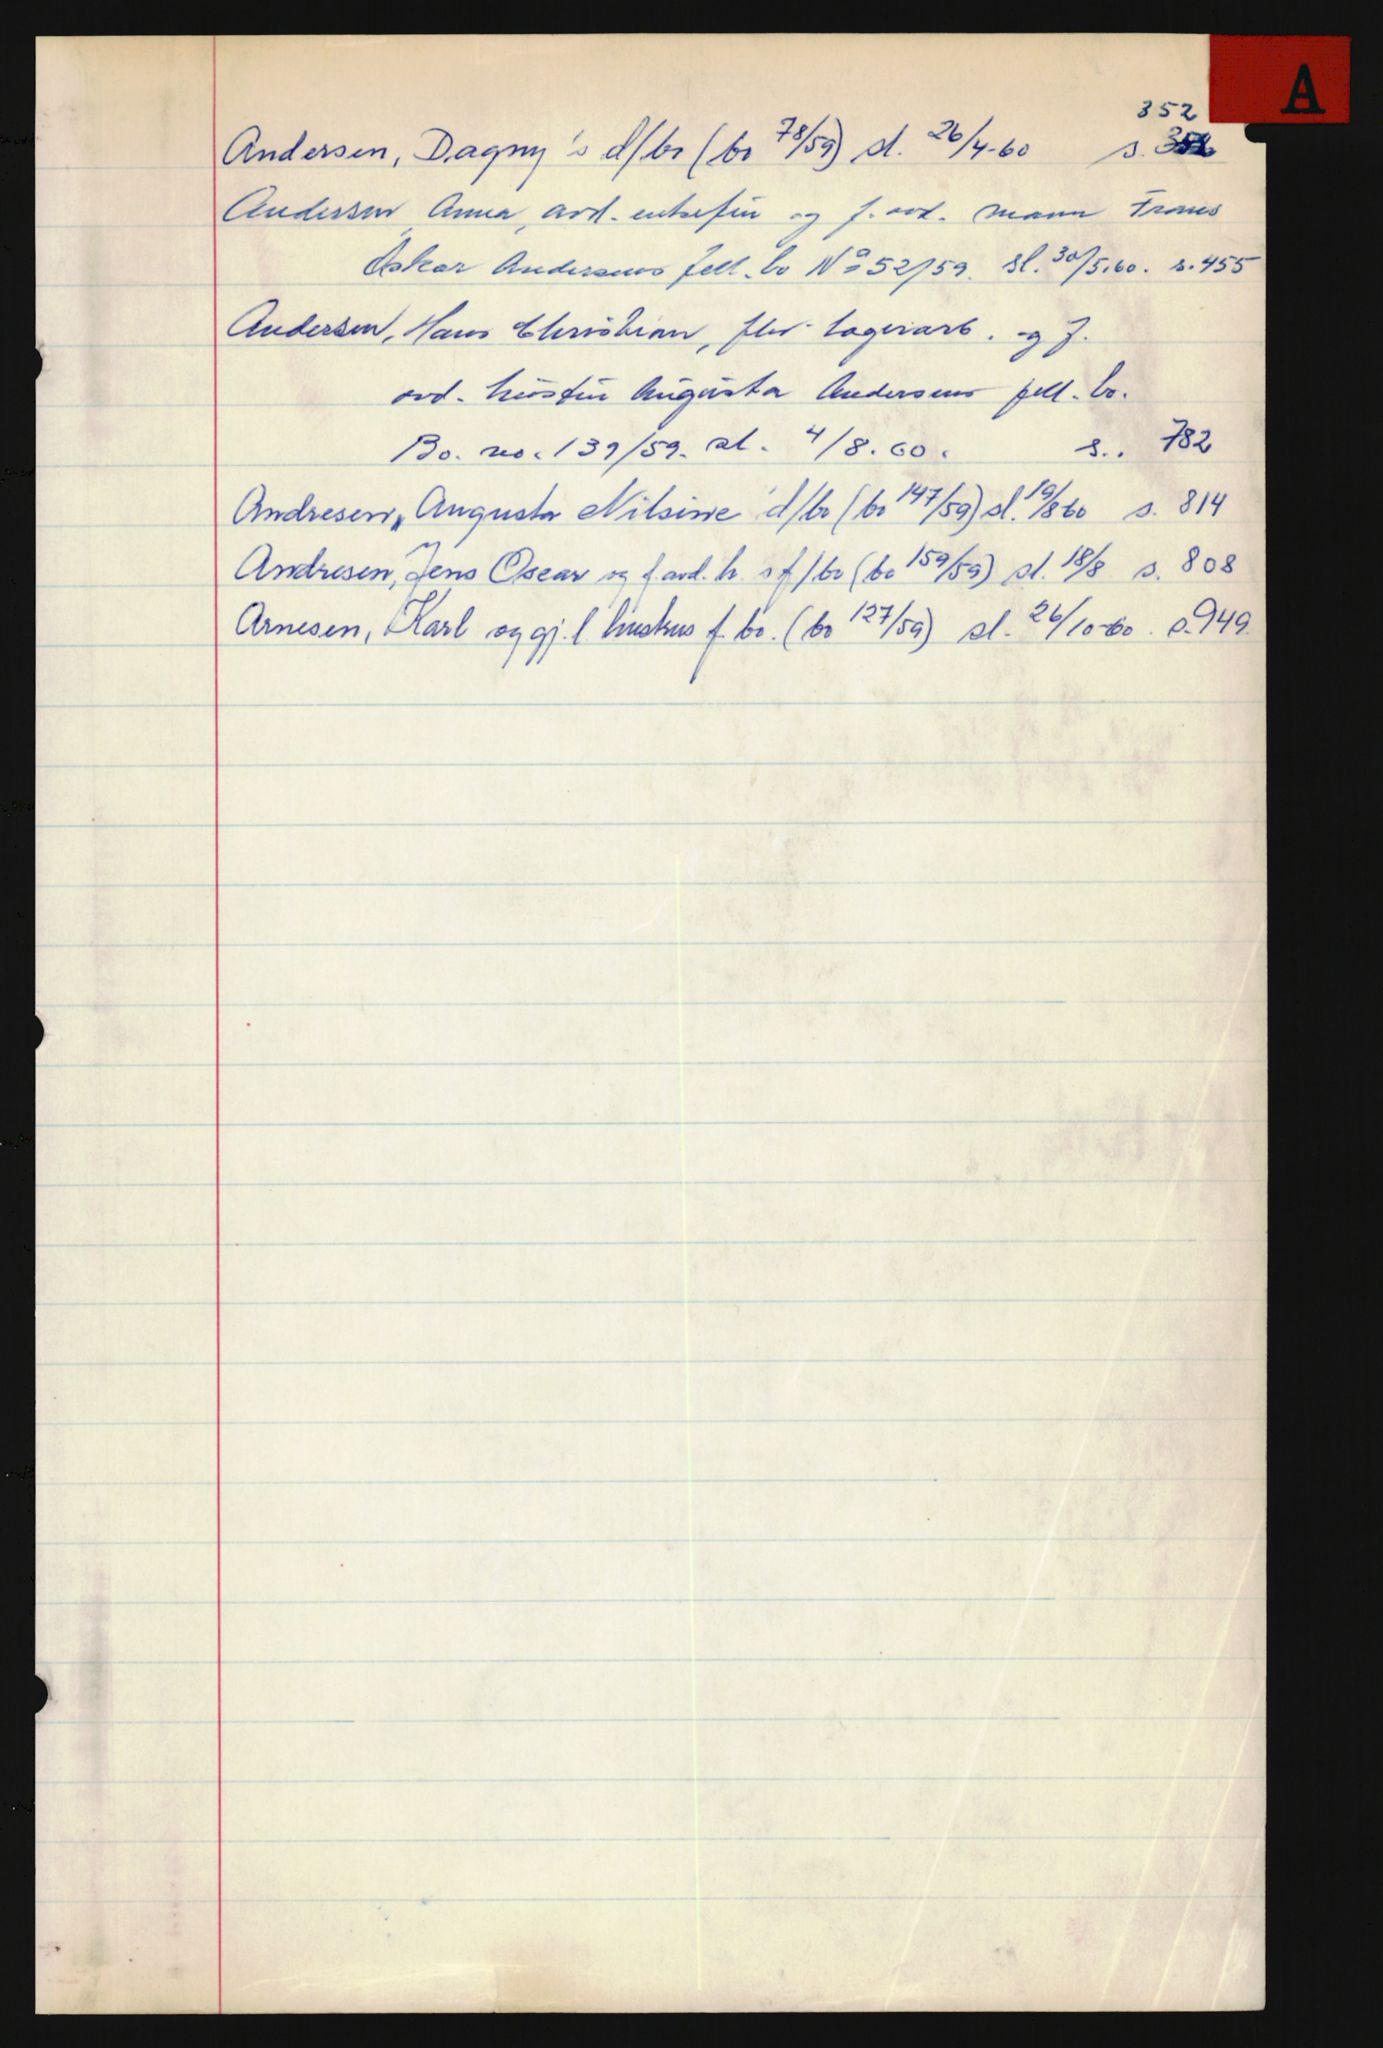 A
352
Andersen, Dagny's d/bo (bo 78/59) sl. 26/4-60 s.
Andersen, Anna, avd. enkefru og f. avd. mann Frans
Oskar Andersens fell. bo No 52/59. sl. 30/5.60. s. 455
Andersen, Hans Christian, fhv. lagerarb. og f.
avd. hustru Augusta Andersens fell. bo.
Bo. no. 139/59. sl. 4/8.60. s. 782
Andresen, Augusta Nilsine d/bo (bo 147/59) sl. 19/8 60 s. 814
Andresen, Jens Oscar og f. avd. h. s f/bo (bo 159/59) sl. 18/8 s. 808
Arnesen, Karl og gj.l. hustrus f. bo. (bo 127/59) sl. 26/10-60. s. 949.